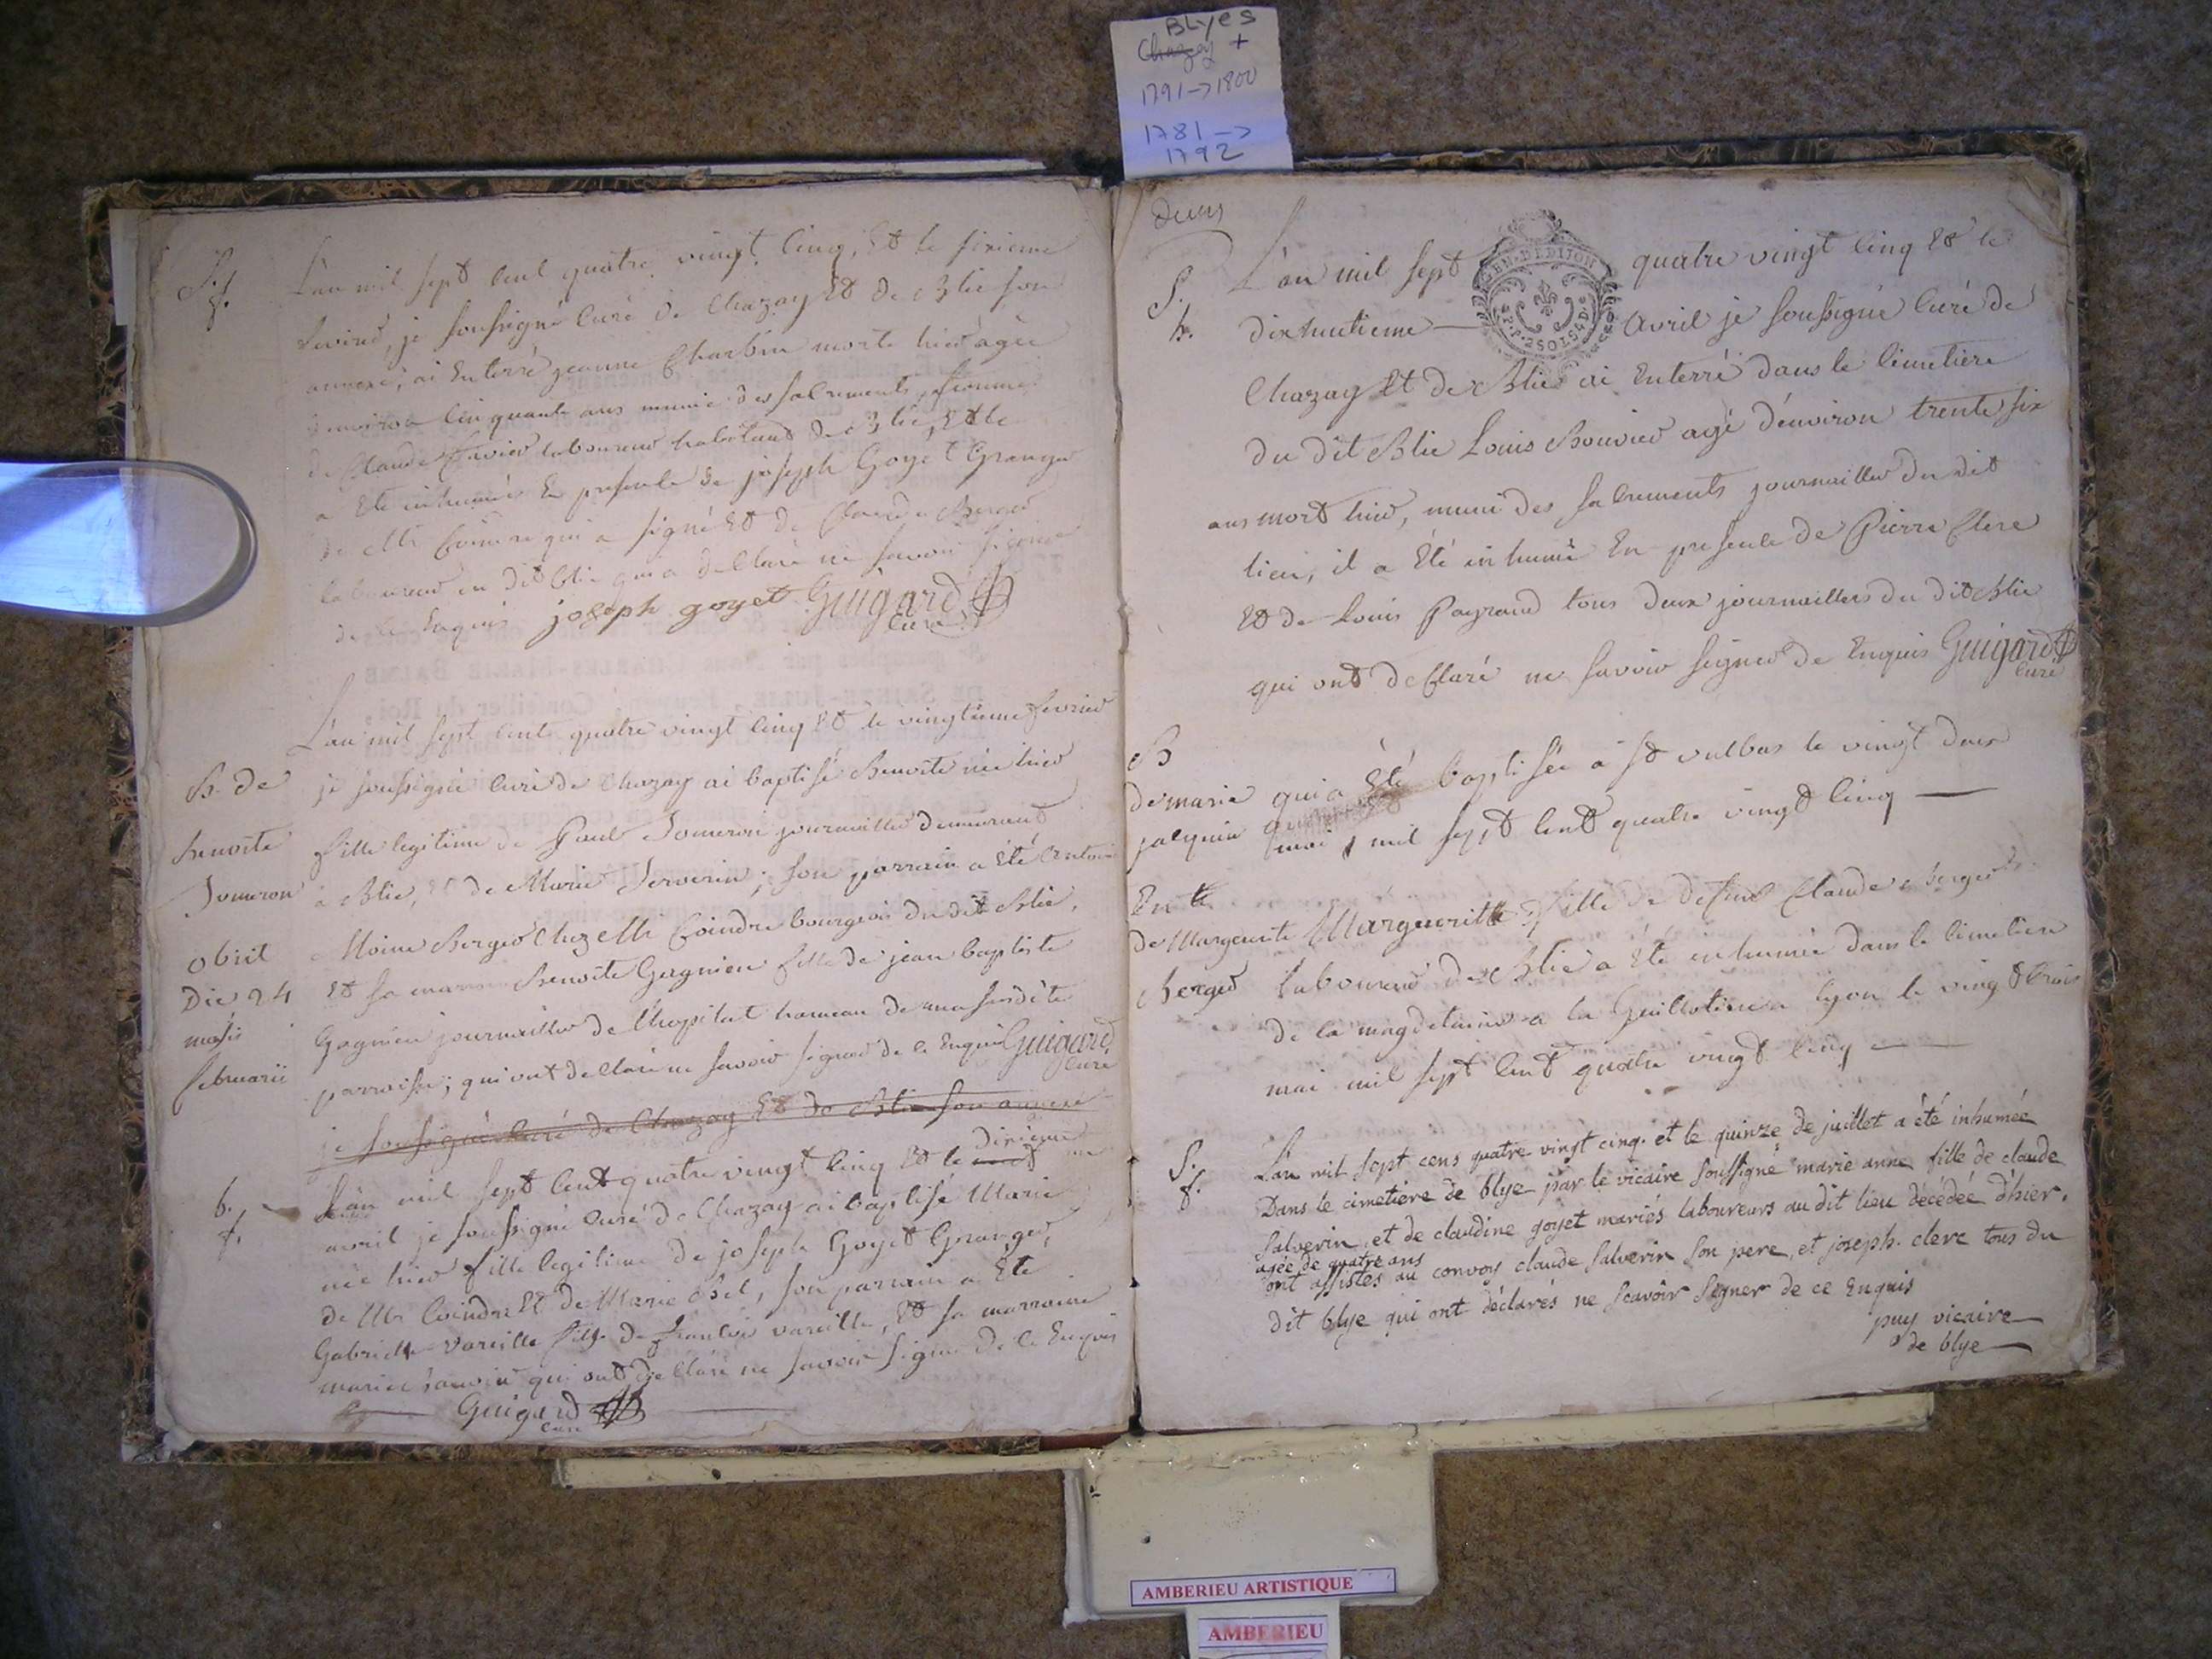 BLyes
Chazey +
1791->1800
1781->
1792
S.
f.
L'an mil sept cent quatre vingt cinq, Et le sixieme
fevrier, je soussigné curé de Chazay Et de Blie son
annexe, ai Enterré jeanne Charbon morte hier âgée
d'environ cinquante ans munie des sacrements, femme
de Claude laboureur habitant de Blie, Elle
a Eté inhumée En presence de joseph Goyet Granger
de Mr Coindre qui a signé Et de Claude Berger
laboureur du dit Blie qui a declaré ne savoir signer
de ce Enquis joseph goyet Guigard
curé
L'an mil sept cent quatre vingt cinq Et le vingtieme fevrier
B. de je soussigné curé de Chazay ai baptisé Benoite née hier
benoite fille legitime de Paul Jomeron journaillier demeurant
Jomeron à Blie, Et de Marie Serverin; son parrain a Eté Antoine
obiit Moine Berger chez Mr Coindre bourgeois du dit Blie,
Die 24 Et sa marraine Benoite Gagnieu fille de jean baptiste
mensis Gagnieu journaillier de l'hopital hameau de ma susdite
februarii parroisse; qui ont declaré ne savoir signer de ce Enquis Guigard
curé
je soussigné curé de Chazay Et de Blie son annexe
dixieme
b. L'an mil sept cent quatre vingt cinq Et le
f. avril je soussigné curé de Chazay ai baptisé Marie
née hier fille legitime de joseph Goyet Granger
de Mr Coindre Et de Marie, son parrain a Eté
Gabriel Vareille fils de francois vareille, Et sa marraine
marie qui ont declaré ne savoir signer de ce Enquis
Guigard
curé
Deux
S.
h.
L'an mil sept quatre vingt cinq Et le
GEN. DE DIJON
dixhuitieme avril je soussigné curé de
Chazay Et de Blie ai Enterré dans le cimetiere
du dit Blie Louis Bouvier agé d'environ trente six
ans mort hier, muni des sacrements journaillier du dit
lieu, il a Eté inhumé En presence de Pierre Clere
Et de Louis Payraud tous deux journailliers du dit Blie
qui ont declaré ne savoir signer de Enquis Guigard
curé
B
de marie qui a Eté baptisée à St vulbas le vingt deux
jacquin mai mil sept cent quatre vingt cinq
Ent
de Marguerite Margueritte fille de defunt Claude berger
Berger laboureur de Blie a Eté inhumée dans le cimetiere
de la magdelaine a la Guillotiere a lyon le vingt trois
mai mil sept cent quatre vingt cinq
S.
f.
L'an mil sept cens quatre vingt cinq. et le quinze de juillet a été inhumée
Dans le cimetière de blye par le vicaire soussigné marie anne fille de claude
salverin, et de claudine goyet mariés laboureurs au dit lieu décédée d'hier.
agée de quatre ans
ont assistés au convoy claude salverin son pere, et joseph clerc tous du
dit blye qui ont déclarés ne scavoir signer de ce Enquis
puy vicaire
de blye
AMBERIEU ARTISTIQUE
AMBERIEU